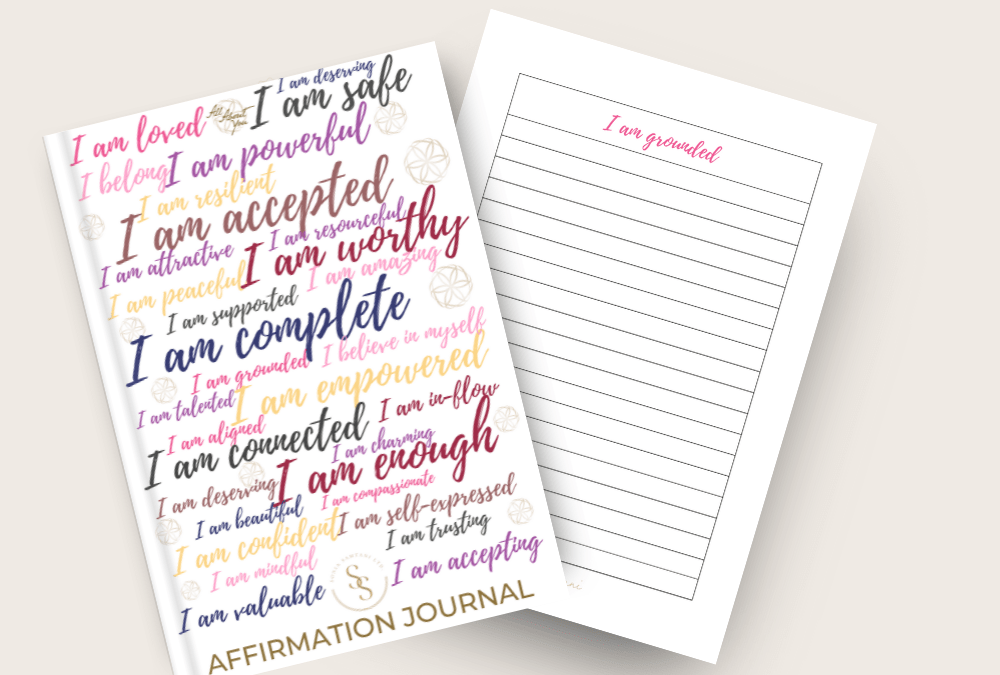 I am deserving
I am loved
All About You
I am safe
I belong
I am powerful
I am resilient
I am accepted
I am resourceful
I am attractive
I am worthy
I am peaceful
I am amazing
I am supported
I am complete
I believe in myself
I am grounded
I am empowered
I am talented
I am in-flow
I am aligned
I am connected
I am charming
I am enough
I am deserving
I am compassionate
I am beautiful
I am self-expressed
I am confident
I am trusting
I am mindful
I am accepting
SS
I am valuable
AFFIRMATION JOURNAL
I am grounded